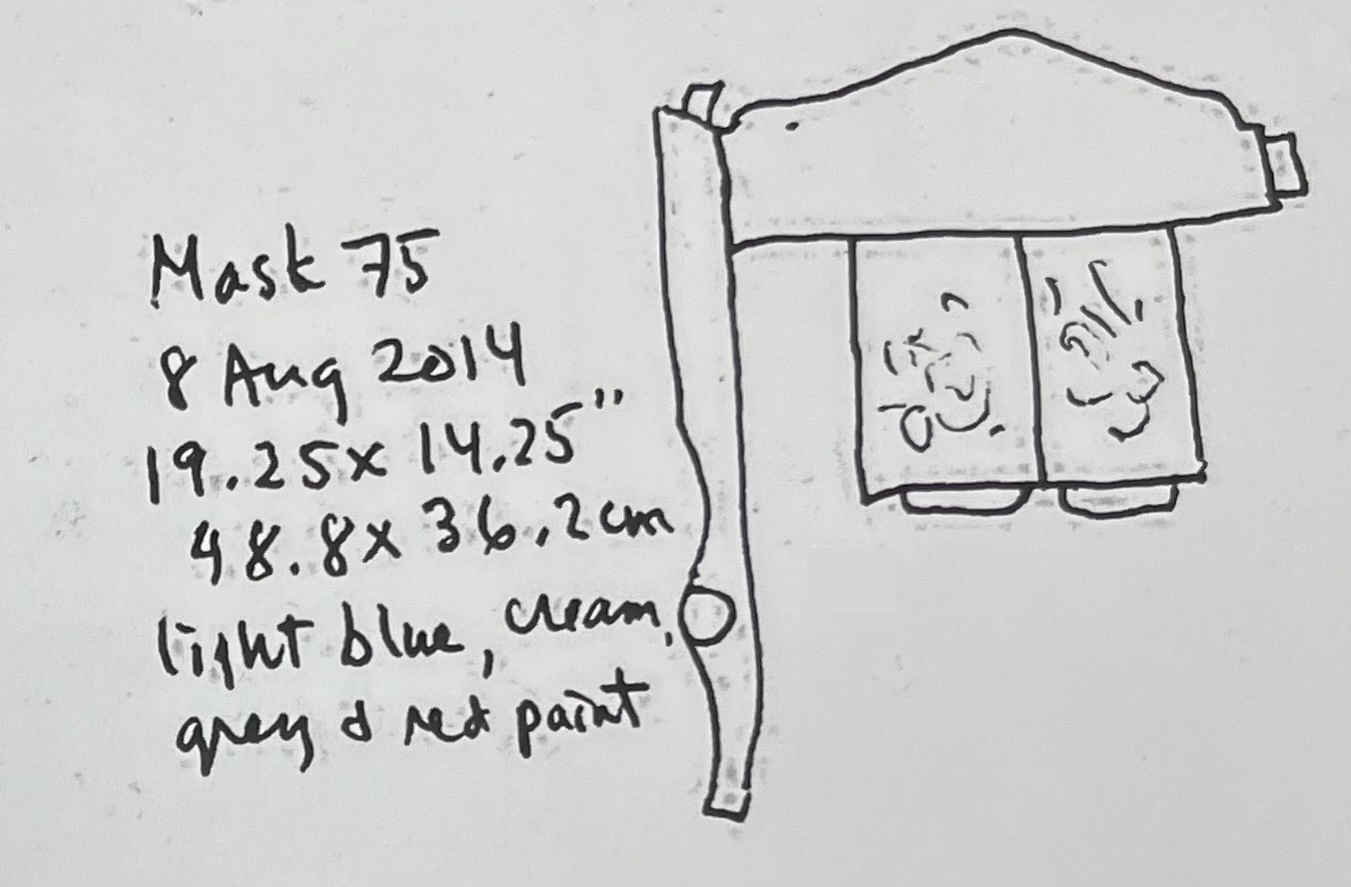 Mask 75
8 Aug 2014
19.25 x 14.25"
48.8 x 36.2 cm
light blue, cream,
grey & red paint